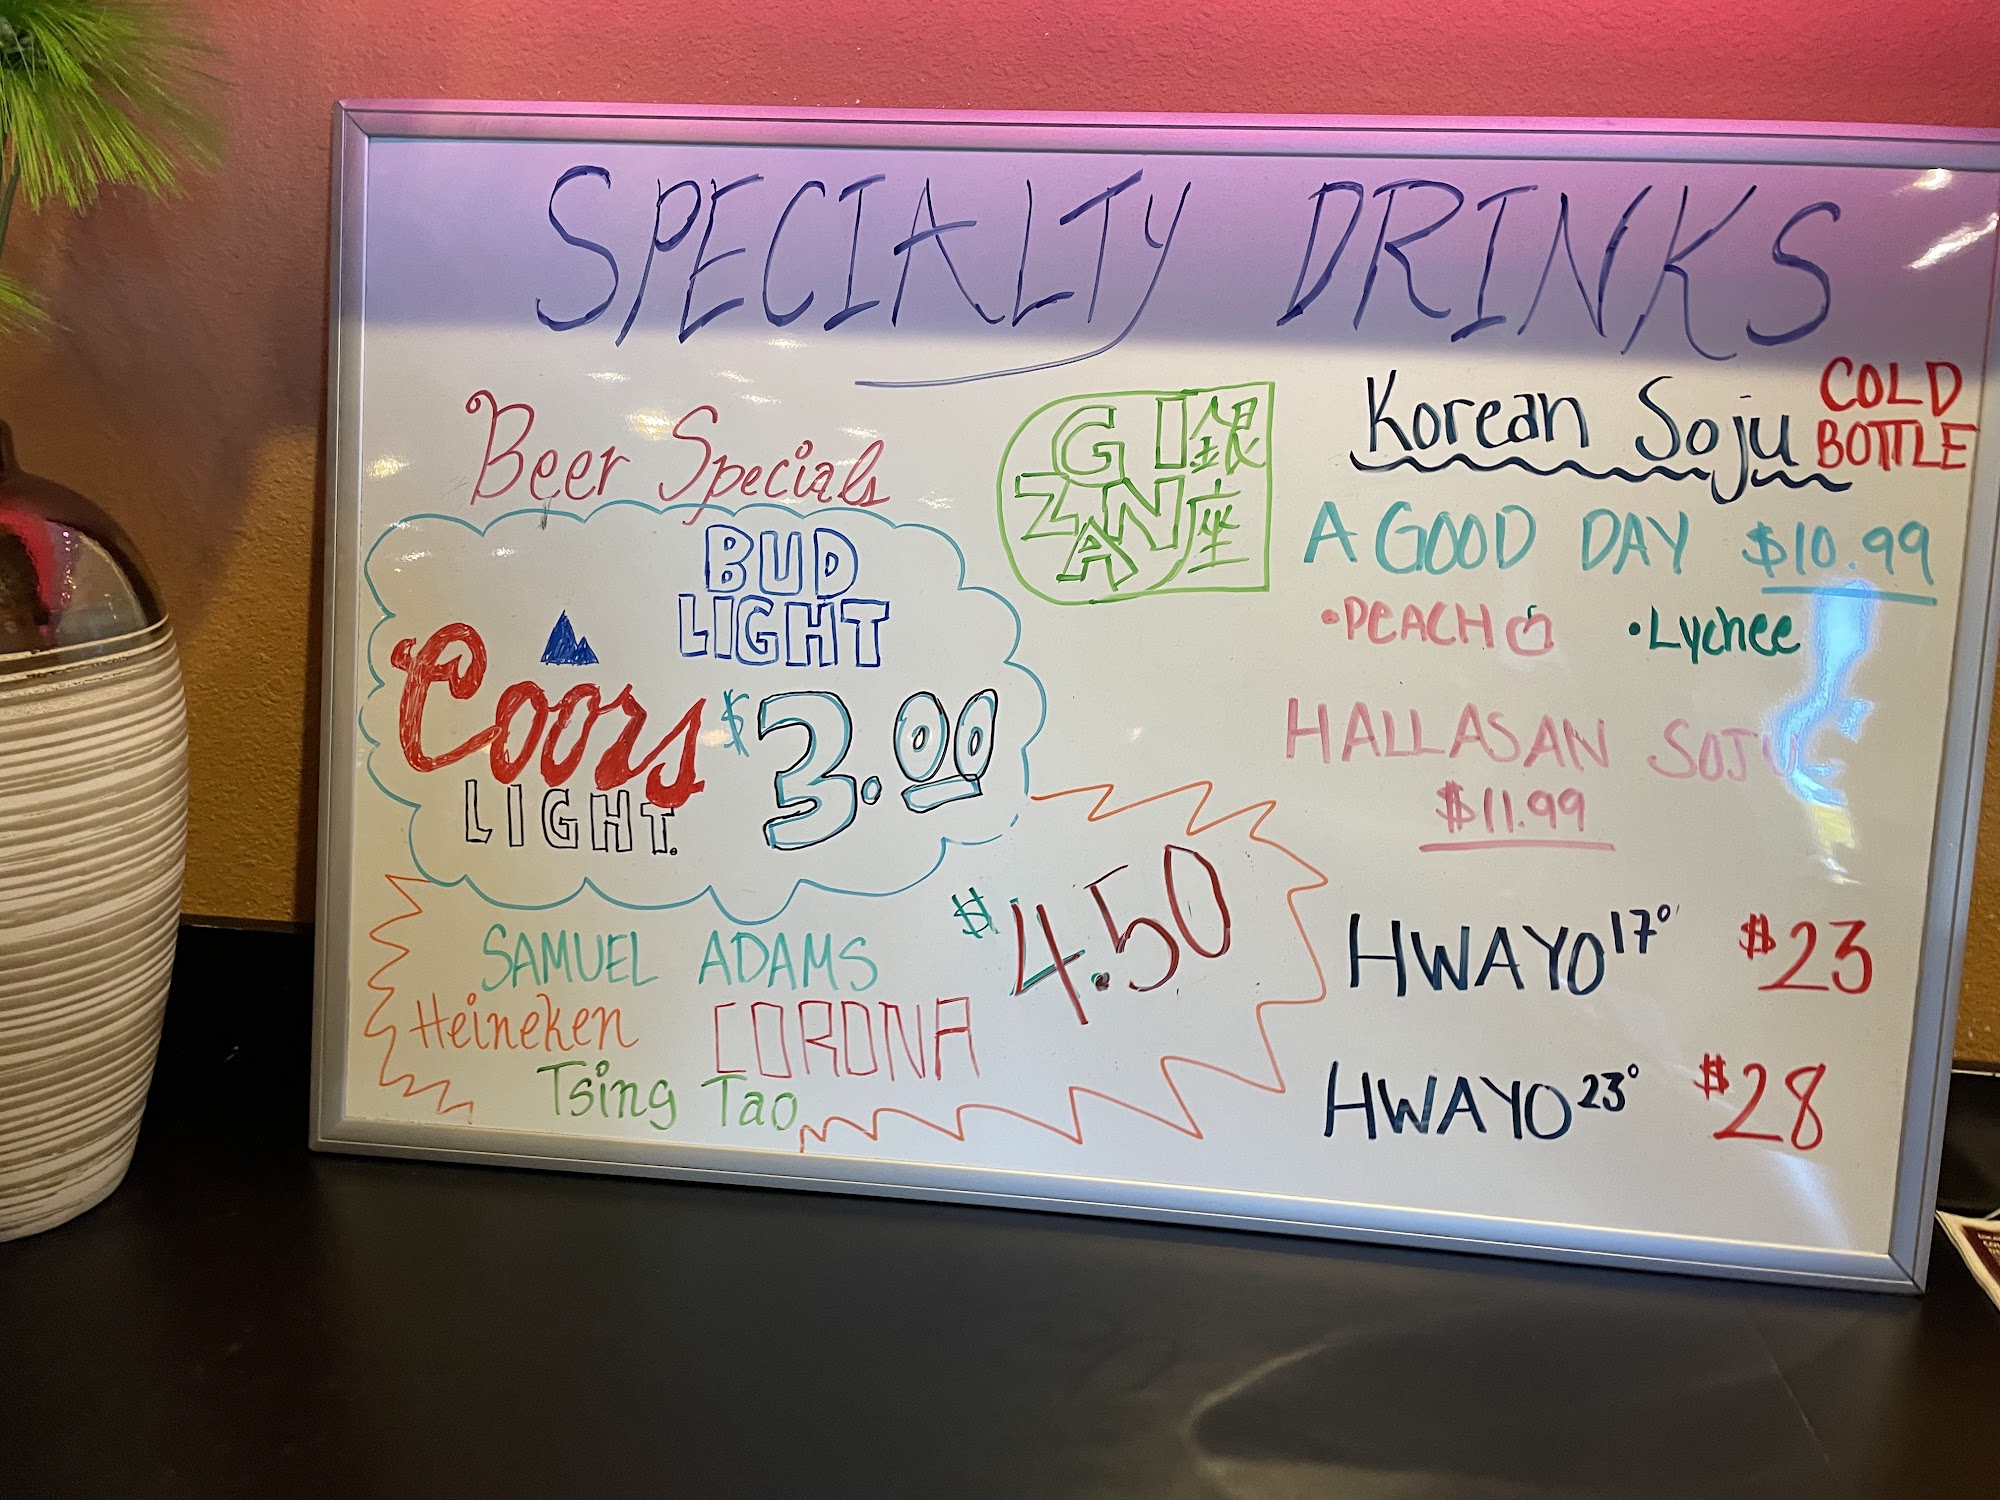 SPECIALTY DRINKS
Beer Specials
BUD
LIGHT
Coors
LIGHT.
$3.00
SAMUEL ADAMS
Heineken CORONA
Tsing Tao
$4.50
GI 銀
ZAN 座
A
Korean Soju COLD
BOTTLE
A GOOD DAY $10.99
•PEACH •Lychee
HALLASAN SOJU
$11.99
HWAYO 17° $23
HWAYO 23° $28